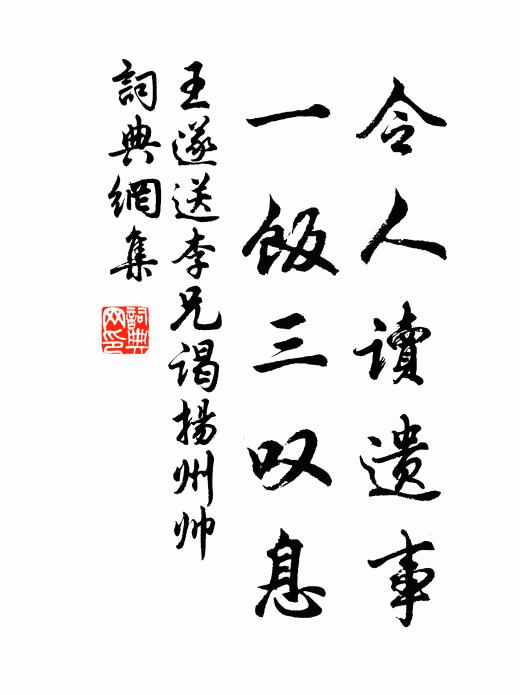 令人讀遺事
一飯三叹息
王遂送李兄谒揚州帅
詞典網集
詞典网印